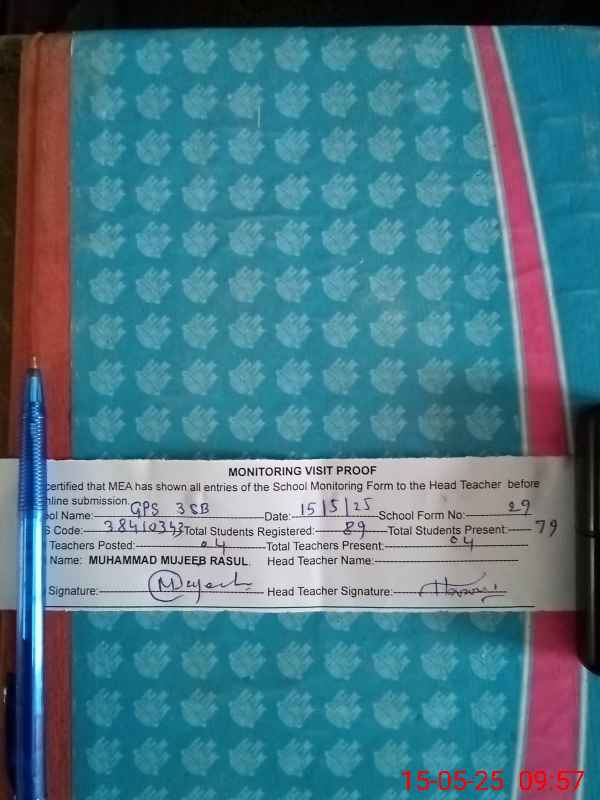 MONITORING VISIT PROOF
certified that MEA has shown all entries of the School Monitoring Form to the Head Teacher before
nline submission.
ool Name: GPS 3SB Date: 15/5/25 School Form No: 29
S Code: 38410343 Total Students Registered: 89 Total Students Present: 79
Teachers Posted: 04 Total Teachers Present: 04
Name: MUHAMMAD MUJEEB RASUL. Head Teacher Name:
Signature: Mujeeb Head Teacher Signature:
15-05-25 09:57